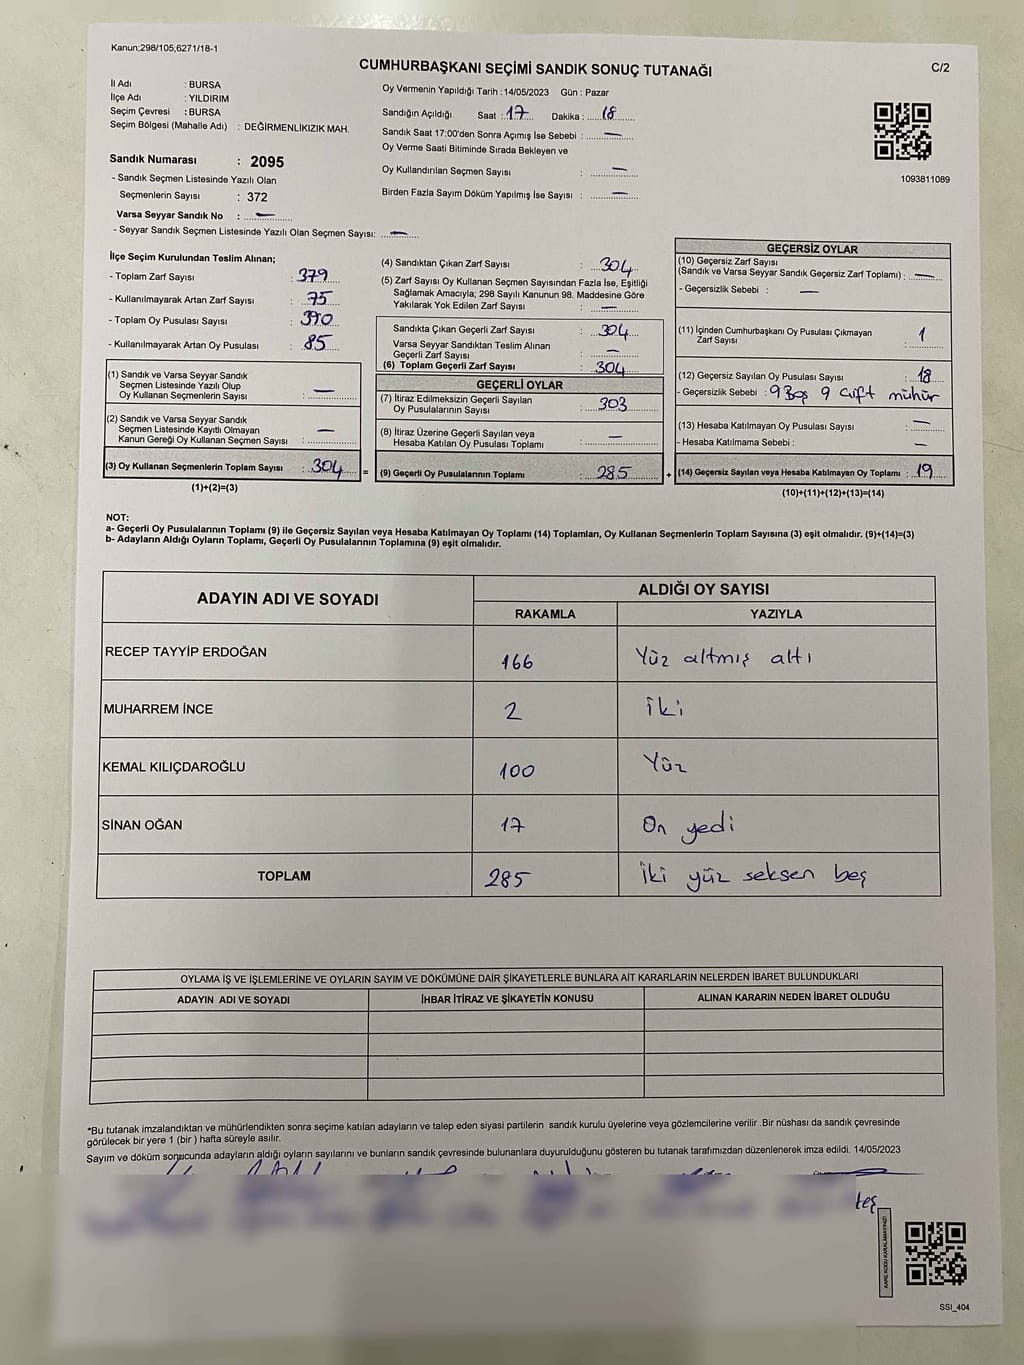 Kanun;298/105,6271/18-1
CUMHURBAŞKANI SEÇİMİ SANDIK SONUÇ TUTANAĞI
C/2
İl Adı : BURSA
İlçe Adı : YILDIRIM
Seçim Çevresi : BURSA
Seçim Bölgesi (Mahalle Adı) : DEĞİRMENLİKIZIK MAH.
Sandık Numarası : 2095
- Sandık Seçmen Listesinde Yazılı Olan
Seçmenlerin Sayısı : 372
Varsa Seyyar Sandık No : —
- Seyyar Sandık Seçmen Listesinde Yazılı Olan Seçmen Sayısı: —
Oy Vermenin Yapıldığı Tarih : 14/05/2023 Gün : Pazar
Sandığın Açıldığı Saat : 17 Dakika : 18
Sandık Saat 17:00'den Sonra Açımış İse Sebebi : —
Oy Verme Saati Bitiminde Sırada Bekleyen ve
Oy Kullandırılan Seçmen Sayısı : —
Birden Fazla Sayım Döküm Yapılmış İse Sayısı : —
1093811089
İlçe Seçim Kurulundan Teslim Alınan;
- Toplam Zarf Sayısı : 379
- Kullanılmayarak Artan Zarf Sayısı : 75
- Toplam Oy Pusulası Sayısı : 390
- Kullanılmayarak Artan Oy Pusulası : 85
(1) Sandık ve Varsa Seyyar Sandık
Seçmen Listesinde Yazılı Olup
Oy Kullanan Seçmenlerin Sayısı : —
(2) Sandık ve Varsa Seyyar Sandık
Seçmen Listesinde Kayıtlı Olmayan
Kanun Gereği Oy Kullanan Seçmen Sayısı : —
(3) Oy Kullanan Seçmenlerin Toplam Sayısı : 304 =
(1)+(2)=(3)
(4) Sandıktan Çıkan Zarf Sayısı : 304
(5) Zarf Sayısı Oy Kullanan Seçmen Sayısından Fazla İse, Eşitliği
Sağlamak Amacıyla; 298 Sayılı Kanunun 98. Maddesine Göre
Yakılarak Yok Edilen Zarf Sayısı : —
Sandıkta Çıkan Geçerli Zarf Sayısı : 304
Varsa Seyyar Sandıktan Teslim Alınan
Geçerli Zarf Sayısı : —
(6) Toplam Geçerli Zarf Sayısı : 304
GEÇERLİ OYLAR
(7) İtiraz Edilmeksizin Geçerli Sayılan
Oy Pusulalarının Sayısı : 303
(8) İtiraz Üzerine Geçerli Sayılan veya
Hesaba Katılan Oy Pusulası Toplamı : —
(9) Geçerli Oy Pusulalarının Toplamı : 285 +
GEÇERSİZ OYLAR
(10) Geçersiz Zarf Sayısı
(Sandık ve Varsa Seyyar Sandık Geçersiz Zarf Toplamı) : —
- Geçersizlik Sebebi : —
(11) İçinden Cumhurbaşkanı Oy Pusulası Çıkmayan
Zarf Sayısı : 1
(12) Geçersiz Sayılan Oy Pusulası Sayısı : 18
- Geçersizlik Sebebi : 9 Boş 9 çift mühür
(13) Hesaba Katılmayan Oy Pusulası Sayısı : —
- Hesaba Katılmama Sebebi : —
(14) Geçersiz Sayılan veya Hesaba Katılmayan Oy Toplamı : 19
(10)+(11)+(12)+(13)=(14)
NOT:
a- Geçerli Oy Pusulalarının Toplamı (9) ile Geçersiz Sayılan veya Hesaba Katılmayan Oy Toplamı (14) Toplamları, Oy Kullanan Seçmenlerin Toplam Sayısına (3) eşit olmalıdır. (9)+(14)=(3)
b- Adayların Aldığı Oyların Toplamı, Geçerli Oy Pusulalarının Toplamına (9) eşit olmalıdır.
ADAYIN ADI VE SOYADI
ALDIĞI OY SAYISI
RAKAMLA YAZIYLA
RECEP TAYYİP ERDOĞAN 166 Yüz altmış altı
MUHARREM İNCE 2 İki
KEMAL KILIÇDAROĞLU 100 Yüz
SİNAN OĞAN 17 On yedi
TOPLAM 285 İki yüz seksen beş
OYLAMA İŞ VE İŞLEMLERİNE VE OYLARIN SAYIM VE DÖKÜMÜNE DAİR ŞİKAYETLERLE BUNLARA AİT KARARLARIN NELERDEN İBARET BULUNDUKLARI
ADAYIN ADI VE SOYADI İHBAR İTİRAZ VE ŞİKAYETİN KONUSU ALINAN KARARIN NEDEN İBARET OLDUĞU
*Bu tutanak imzalandıktan ve mühürlendikten sonra seçime katılan adayların ve talep eden siyasi partilerin sandık kurulu üyelerine veya gözlemcilerine verilir .Bir nüshası da sandık çevresinde
görülecek bir yere 1 (bir ) hafta süreyle asılır.
Sayım ve döküm sonucunda adayların aldığı oyların sayılarını ve bunların sandık çevresinde bulunanlara duyurulduğunu gösteren bu tutanak tarafımızdan düzenlenerek imza edildi. 14/05/2023
KARE KODU KARALAMAYINIZ!
SSI_404